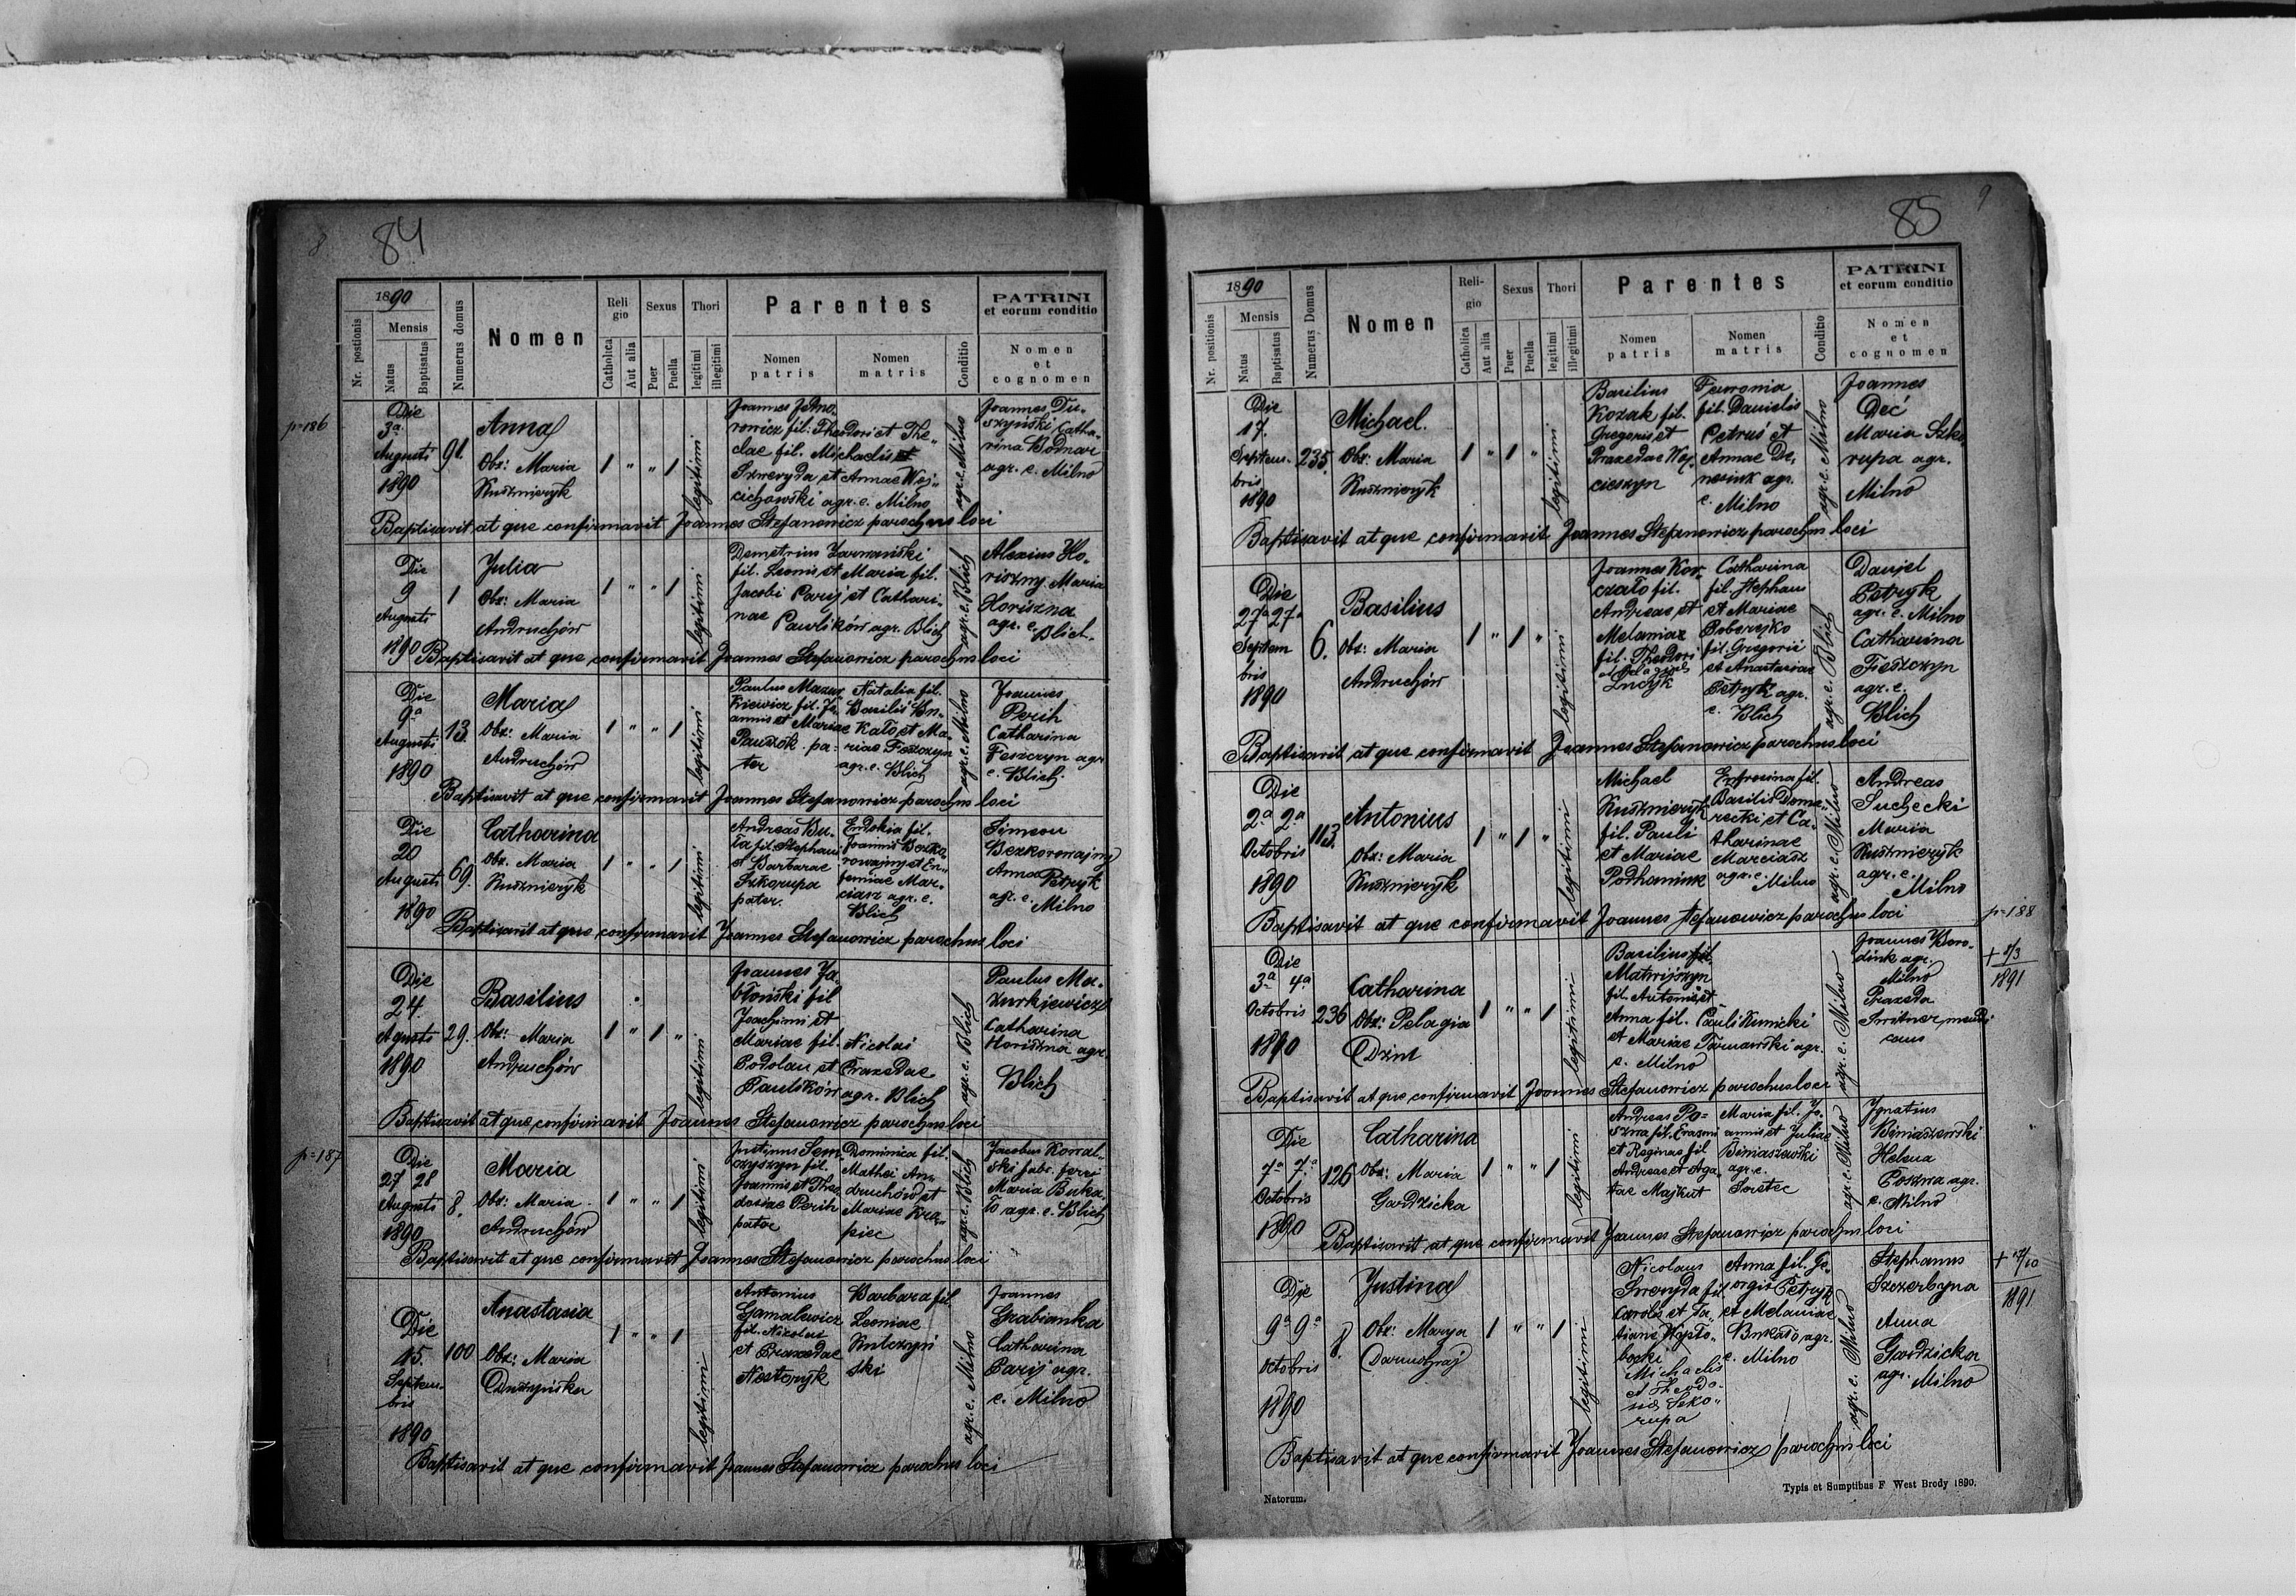 8 84
1890
Nr. postionis
Mensis
Natus
Baptisatus
Numerus domus
Nomen
Religio
Catholica
Aut alia
Sexus
Puer
Puella
Thori
legitimi
illegitimi
Parentes
Nomen patris
Nomen matris
Conditio
PATRINI
et eorum conditio
Nomen
et
cognomen
p-186
Die
3a
Augusti
1890
91.
Anna
Obs: Maria
Kuśznieryk
1 " " 1
legitimi
rowicz fil: Theodori et The-
clae fil. Michaelis et
Szweryda et Annae Woj-
cichowski agr. c. Milno
agr. c. Milno
Joannes Du-
szyński Catha-
rina Bodnar
agr. c. Milno
Baptisavit at que confirmavit Joannes Stefanowicz parochus loci
Die
9
Augusti
1890
1
Julia
Obs: Maria
Andruchów
1 " " 1
legitimi
Demetrius Zarwański
fil. Leonis et Maria fil.
Jacobi Paryj et Cathari-
nae Pawlików agr. Blich
agr. c. Blich
Alexius Ho-
riszny Maria
Horiszna
agr. c.
Blich.
Baptisavit at que confirmavit Joannes Stefanowicz parochus loci
Die
9a
Augusti
1890
13.
Maria
Obs: Maria
Andruchów
1 " " 1
legitimi
Paulus Mazur- Natalia fil.
kiewicz fil. Jo- Basilii Bu-
annis et Mariae kało et Ma-
pa- riae Feszczyn
ter agr. c. Blich
agr. c. Milno
Joannes
Perih
Catharina
Feszczyn agr
c. Blich.
Baptisavit at que confirmavit Joannes Stefanowicz parochus loci
Die
20
Augusti
1890
69.
Catharina
Obs. Maria
Kuśznieryk
1 " " 1
legitimi
Andreas Bu- Eudokia fil.
ła fil. Stephani Joannis Bezko-
et Barbarae rowajny et Eu-
Szkorupa femiae Mar-
pater. ciasz agr. c.
Blich
Simeon
Bezkorowajny
Anna Petryk
agr. c. Milno
Baptisavit at que confirmavit Joannes Stefanowicz parochus loci
Die
24
Agusti
1890
29.
Basilius
Obs: Maria
Andruchów
1 " 1 "
legitimi
Joannes Ja-
błoński fil
Joachimi et
Mariae fil. Nicolai
Podolan et Praxedae
Paulików agr. Blich
agr. c. Blich
Paulus Ma-
zurkiewicz
Catharina
Horiszna agr.
Blich
Baptisavit at que confirmavit Joannes Stefanowicz parochus loci
p-187
Die
27 28
Augusti
1890
8.
Maria
Obs: Maria
Andruchów
1 " " 1
legitimi
Justinus Sem- Dominica fil.
czyszyn fil. Mathei An-
Joannis et Theo- druchów et
dosiae Perih Mariae Kra-
pater piec
agr. c. Blich
Jacobus Kowal-
ski fabr. ferri
Maria Buka-
ło agr. c. Blich
Baptisavit at que confirmavit Joannes Stefanowicz parochus loci
Die
15.
Septem-
bris
1890
100
Anastasia
Obs: Maria
Duszyńska
1 " " 1
legitimi
Antonius Barbara fil
Gamalewicz Leoniae
fil. Nicolai Kulczyń
et Praxedae ski
Nestoryk
agr. c. Milno
Joannes
Grabianka
Catharina
Paryj agr.
c. Milno
Baptisavit at que confirmavit Joannes Stefanowicz parochus loci
85 9
1890
Nr. positionis
Mensis
Natus
Baptisatus
Numerus Domus
Nomen
Religio
Catholica
Aut alia
Sexus
Puer
Puella
Thori
legitimi
illegitimi
Parentes
Nomen patris
Nomen matris
Conditio
PATRINI
et eorum conditio
Nomen
et
cognomen
Die
17.
Septem-
bris
1890
235.
Michael.
Obs: Maria
Kuśznieryk
1 " 1 "
legitimi
Basilius Fewronia
Kozak fil. fil. Danielis
Gregoris et Petruś et
Praxedae Woj- Annae De-
cieszyn nesiuk agr.
c. Milno
agr. c. Milno
Joannes
Deć
Maria Szko
rupa agr.
Milno
Baptisavit at que confirmavit Joannes Stefanowicz parochus loci
Die
27a 27a
Septem
bris
1890
6.
Basilius
Obs: Maria
Andruchów
1 " 1 "
legitimi
Joannes Kor- Catharina
czało fil. fil. Stephani
Andreae et et Mariae
Melaniae Poborejko
fil. Theodori fil. Gregorii
et Anastasiae
Łuczyk Petryk agr.
c. Blich
agr. c. Blich
Daniel
Petryk
agr. c. Milno
Catharina
Feszczyn
agr. c.
Blich
Baptisavit at que confirmavit Joannes Stefanowicz parochus loci
Die
2a 2a
Octobris
1890
113.
Antonius
Obs: Maria
Kuśznieryk
1 " 1 "
legitimi
Michael Eufrosina fil.
Kuśznieryk Basilii Doma-
fil. Pauli recki et Ca-
et Mariae tharinae
Podhaniuk Marciasz
agr. c. Milno
agr. c. Milno
Andreas
Suchecki
Maria
Kuśznieryk
agr. c.
Milno
Baptisavit at que confirmavit Joannes Stefanowicz parochus loci
p-188
Die
3a 4a
Octobris
1890
236
Catharina
Obs: Pelagia
Dziut
1 " " 1
legitimi
Basilius fil.
Matwijszyn
fil. Antonii et
Anna fil. Pauli Kunicki
et Mariae Tarnawski agr.
c. Milno
agr. c. Milno
Joannes Boro-
diuk agr.
Milno
Praxeda
+ 8/3
1891
Baptisavit at que confirmavit Joannes Stefanowicz parochus loci
Die
7a 7a
Octobris
1890
126
Catharina
Obs: Maria
Gwdzicka
1 " " 1
legitimi
Andreas Po- Maria fil. Jo-
szwa fil. Erazmi annis et Juliae
et Reginae fil Biniaszewski
Andreae et Aga- agr. c.
tae Majkut
agr. c. Milno
Ignatius
Biniaszewski
Helena
Poszwa agr.
c. Milno
Baptisavit at que confirmavit Joannes Stefanowicz parochus loci
Die
9a 9a
Octobris
1890
8.
Justina
Obs: Marya
1 " " 1
legitimi
Nicolaus Anna fil. Ge-
Sweryda fil orgii Petryk
Caroli et Ta- et Melaniae
tianae Bukało agr.
c. Milno
Michaelis
et Theodo-
Szko-
rupa
agr. c. Milno
Stephanus
Szczerbyna
Anna
Gwdzicka
agr. Milno
+ 7/10
1891
Baptisavit at que confirmavit Joannes Stefanowicz parochus loci
Natorum.
Typis et Sumptibus F West Brody 1890.